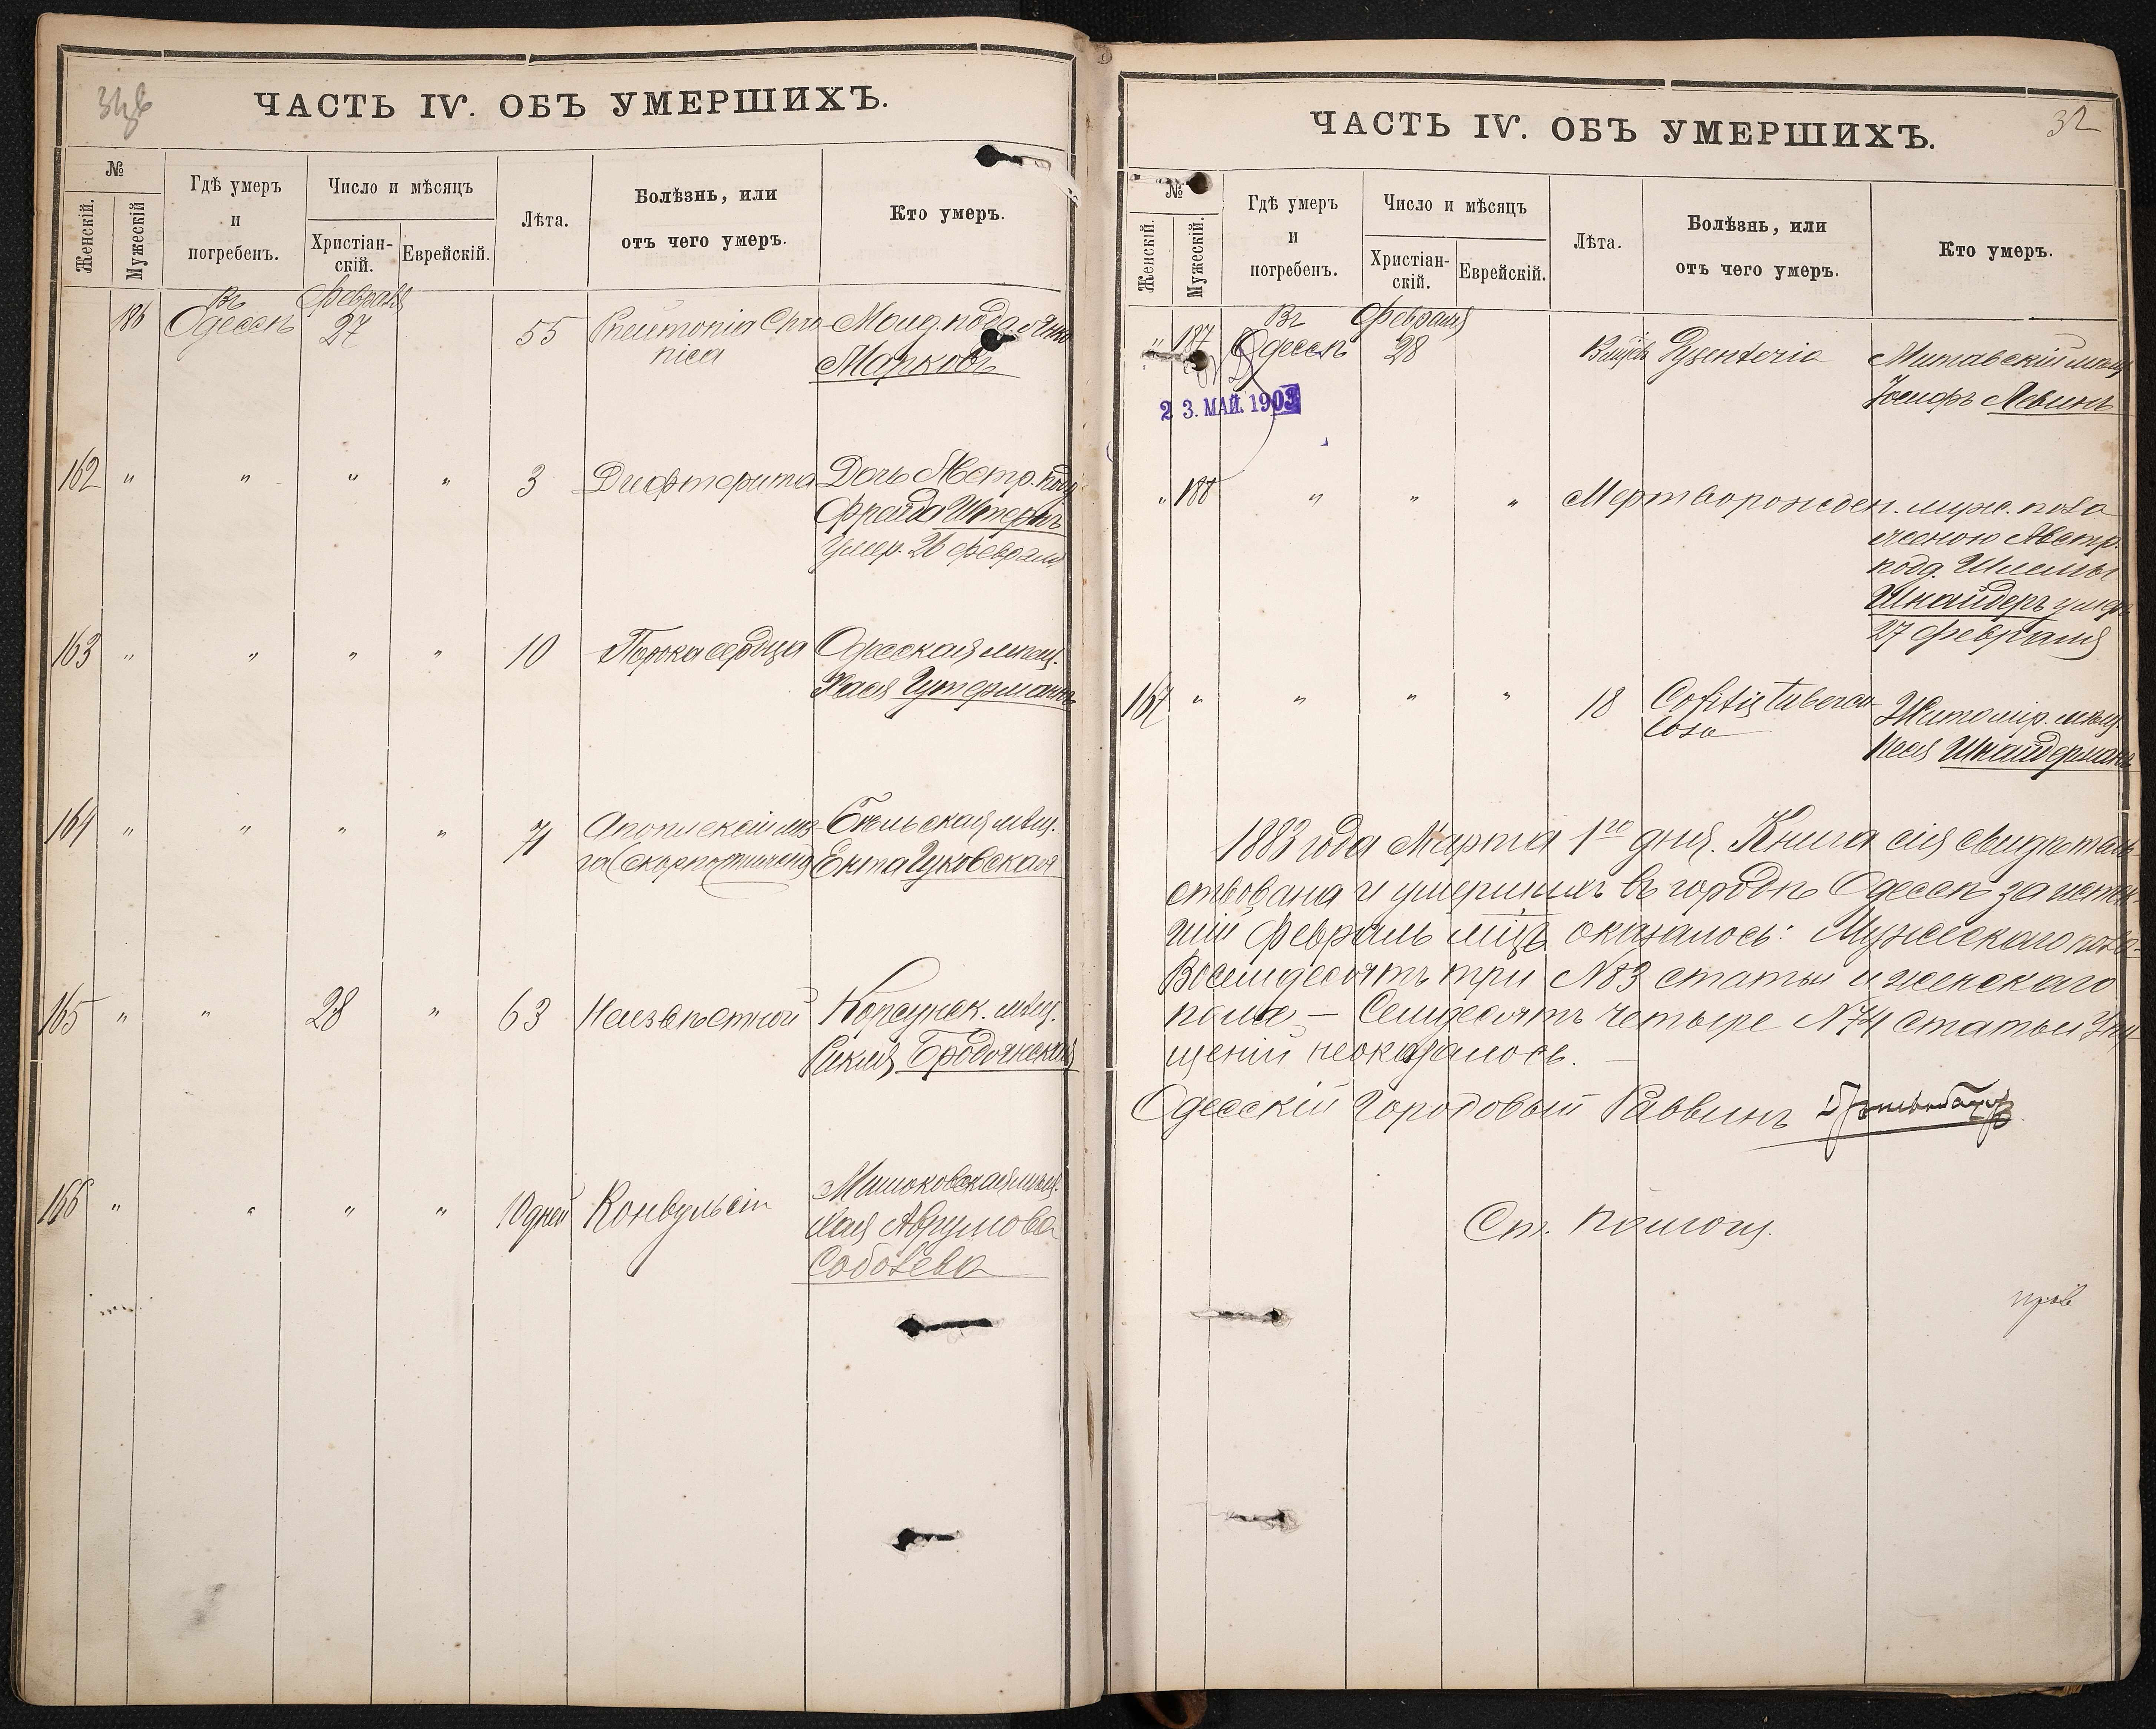 ЧАСТЬ IV. ОБЪ УМЕРШИХЪ.
№
Женскій.
Мужескій
Гдѣ умеръ
и
погребенъ.
Число и мѣсяцъ
Христіан-
скій.
Еврейскій.
Лѣта.
Болѣзнь, или
отъ чего умеръ.
Кто умеръ.
186 Въ Одессѣ Февраля 27 55 Pneumonia Chro-
nica
Марковъ
162 " " " " 3 Дифтерита Дочь Австр. подд.
Фрейда Штернъ
умер. 26 февраля
163 " " " " 10 Порока сердца Одесская мѣщ.
Хася Гутерманъ
164 " " " " 71
Ента Цуковская
165 " " 28 " 63 Неизвѣстной Корсунск. мѣщ.
Рикля Бродянская
166 " " " " 10 дней Конвульсіи
Хая Аврумова
Соболева
ЧАСТЬ IV. ОБЪ УМЕРШИХЪ.
32
№
Женскій.
Мужескій.
Гдѣ умеръ
и
погребенъ.
Число и мѣсяцъ
Христіан-
скій.
Еврейскій.
Лѣта.
Болѣзнь, или
отъ чего умеръ.
Кто умеръ.
" 187 Въ Одессѣ Февраля 28 Dysenteria Митавскій мѣщ.
Іосифъ Левинъ
23. МАЙ. 1903
" 188 " " " Мертворожден. муж. пола
Австр.
подд. Шлемы
Шнайдеръ умеръ
27 февраля
167 " " " " 18 tubercu-
losa
Житомір. мѣщ.
Песя Шнайдерманъ
1883 года Марта 1го дня. Книга сія свидѣтель-
ствована и умершихъ въ городѣ Одессѣ за истек-
шій Февраль мцъ оказалось: Мужескаго пола-
Восемьдесятъ три №83 статьи и женскаго
пола — Семьдесятъ четыре №74 статьи Упу-
щеній неоказалось. —
Одесскій Городовый Раввинъ
Ст.